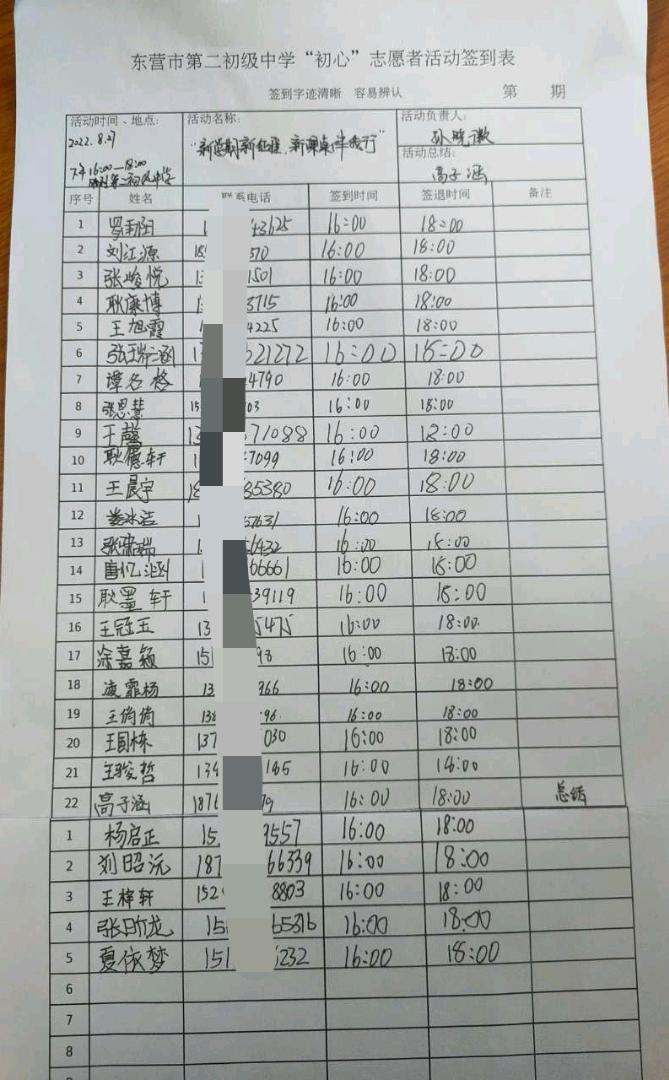 东营市第二初级中学“初心”志愿者活动签到表
签到字迹清晰 容易辨认 第 期
活动时间、地点: 活动名称: 活动负责人:
2022.8.27 “新学期新征程,新课桌伴我行” 孙晓微
下午16:00—18:00 第二初级中学 活动总结: 高子涵
序号 姓名 联系电话 签到时间 签退时间 备注
1 43625 16:00 18:00
2 刘江源 570 16:00 18:00
3 张峻悦 1501 16:00 18:00
4 耿康博 3715 16:00 18:00
5 王旭霞 4225 16:00 18:00
6 张瑞涵 621272 16:00 18:00
7 谭名格 4790 16:00 18:00
8 张恩慧 15 03 16:00 18:00
9 王馨 13 71088 16:00 18:00
10 耿德轩 1 7099 16:00 18:00
11 王晨宇 18 85380 16:00 18:00
12 姜冰洁 1 57631 16:00 18:00
13 张潇瑞 56432 16:00 18:00
14 唐忆涵 1 66661 16:00 18:00
15 耿墨轩 1 39119 16:00 18:00
16 王冠玉 13 5475 16:00 18:00
17 涂嘉颖 151 98 16:00 18:00
18 凌霏杨 13 366 16:00 18:00
19 王俏俏 138 96 16:00 18:00
20 王国栋 137 030 16:00 18:00
21 王骏哲 134 145 16:00 18:00
22 高子涵 187 79 16:00 18:00 总结
1 杨启正 15 9557 16:00 18:00
2 刘昭沅 187 66339 16:00 18:00
3 王梓轩 152 8803 16:00 18:00
4 张昕龙 15 65316 16:00 18:00
5 夏依梦 151 232 16:00 18:00
6
7
8